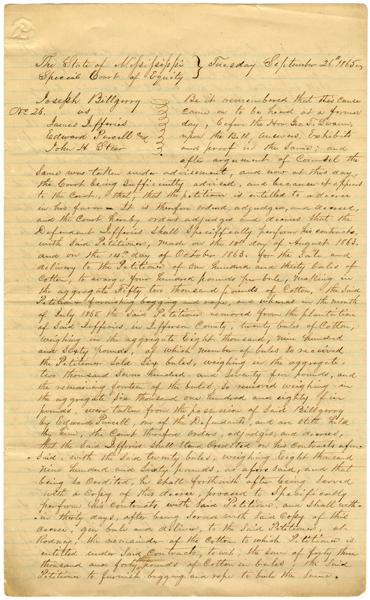 The State of Mississippi } Tuesday September 26th 1865
Special Court of Equity
Joseph Billgerry
No 26. vs
James Jefferies
Edward Pursell and
John H
Be it remembered that this cause
came on to be heard at a former
day, before the Hon Geo.
upon the Bill, Answers, Exhibits
and proof in the same; and
after argument of Counsel the
same was taken under advisement, and now at this day,
the Court being sufficiently advised, and because it appears
to the Court, that, the petitioner is entitled to a decree
in his favor. It is therefore ordered, adjudged, and decreed,
and the Court hereby, orders adjudges and decrees that the
Defendant Jefferies shall Specifically perform his contracts,
with Said Petitioner, made on the 18th day of August 1863.
and on the 14th day of October 1863. for the Sale and
delivery to the Petitioner of One hundred and thirty bales of
Cotton, to average four hundred pounds per bale, making in
the aggregate Fifty two thousand pounds of Cotton, the Said
Petitioner furnishing bagging and rope, and whereas in the month
of July 1865 the Said Petitioner removed from the plantation
of Said Jefferies in Jefferson County, twenty bales of Cotton,
weighing in the aggregate Eight thousand, nine hundred
and Sixty pounds, of which number of bales so received
the Petitioner sold Six bales, weighing in the aggregate,
two thousand Seven hundred and Seventy five pounds, and
the remaining fourteen of the bales, So removed weighing in
the aggregate Six thousand one hundred and eighty five
pounds, were taken from the possession of Said Billgerry
by Edward Pursell, one of the Defendants, and are still held
by him, the Court therefore orders, adjudges, and decrees,
that the Said Jefferies shall Stand Credited on his Contracts afore
Said, with the Said twenty bales, weighing Eight thousand
Nine hundred and Sixty pounds, as afore said, and that
being So Credited, he shall forthwith after being Served
with a Copy of this decree, proceed to Specifically
perform his Contracts with Said Petitioner, and shall with-
in thirty days, after being Served with Said Copy of this
decree, gin bale and deliver, to the Said Petitioner, at
Rodney, the remainder of the Cotton to which Petitioner is
entitled under Said Contracts, to wit, the sum of forty three
thousand and forty pounds of Cotton in bales, the Said
Petitioner to furnish bagging and rope to bale the Same.